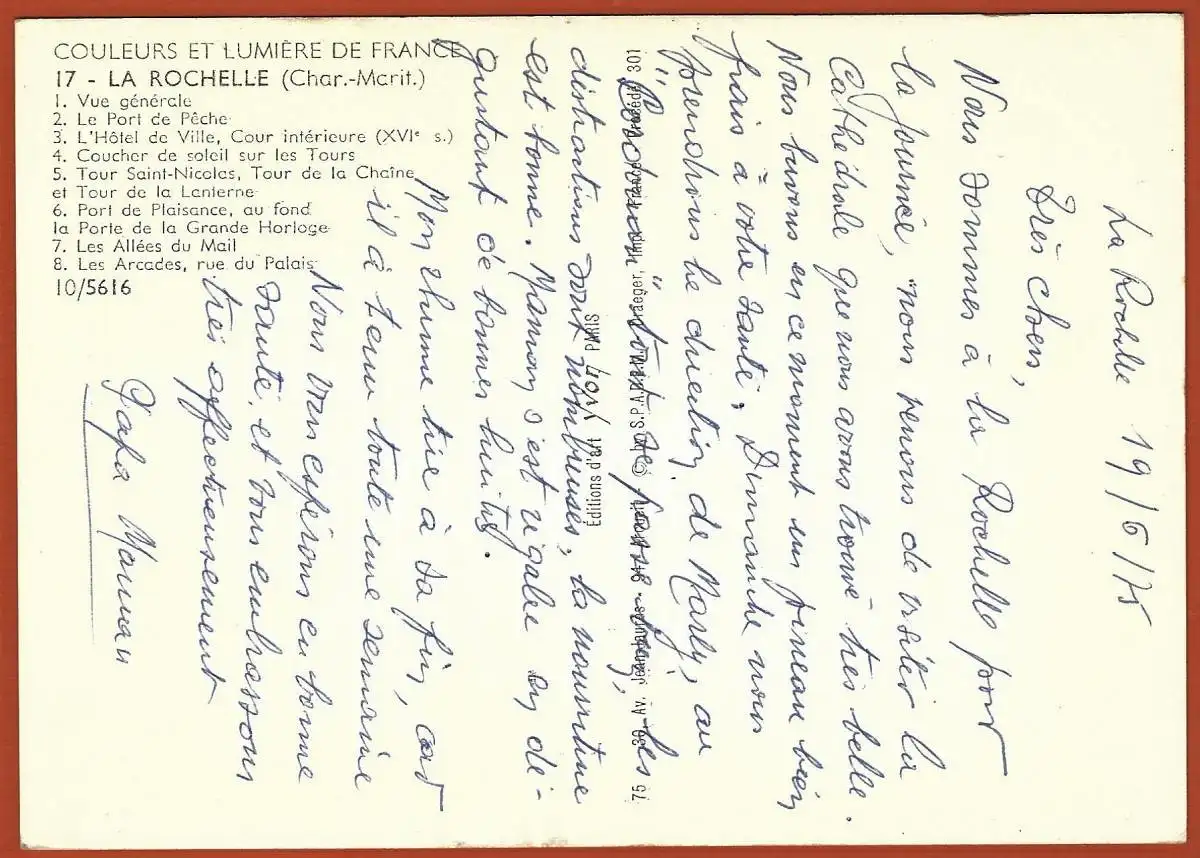 COULEURS ET LUMIÈRE DE FRANCE
17 - LA ROCHELLE (Char.-Marit.)
1. Vue générale
2. Le Port de Pêche
3. L'Hôtel de Ville, Cour intérieure (XVIe s.)
4. Coucher de soleil sur les Tours
5. Tour Saint-Nicolas, Tour de la Chaîne
et Tour de la Lanterne
6. Port de Plaisance, au fond
la Porte de la Grande Horloge
7. Les Allées du Mail
8. Les Arcades, rue du Palais
10/5616
La Rochelle 19/6/75
Très chers,
Nous sommes à La Rochelle pour
la journée, nous venons de visiter la
Cathédrale que nous avons trouvé très belle.
Nous buvons en ce moment un pineau bien
frais à votre santé. Dimanche nous
prendrons la direction de Marly, au
tout se passe bien, les
distractions sont nombreuses, la nourriture
est bonne. Maman s'est régalée en dé-
gustant de bonnes huitres.
Mon rhume tire à sa fin, car
il à tenu toute une semaine
Nous vous espérons en bonne
santé, et vous embrassons
très affectueusement
Papa Maman
Editions d'art YVON PARIS
75 39 - Av. Jean-Jaurès - 94 - Arcueil - © by S.P.A.D.E.M. Draeger, Imp. France Procédé 301